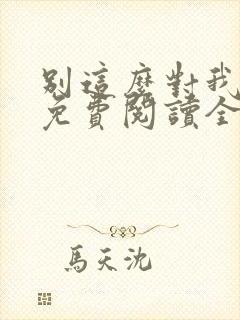 別這麼對我
免費閱讀全
馬天沈